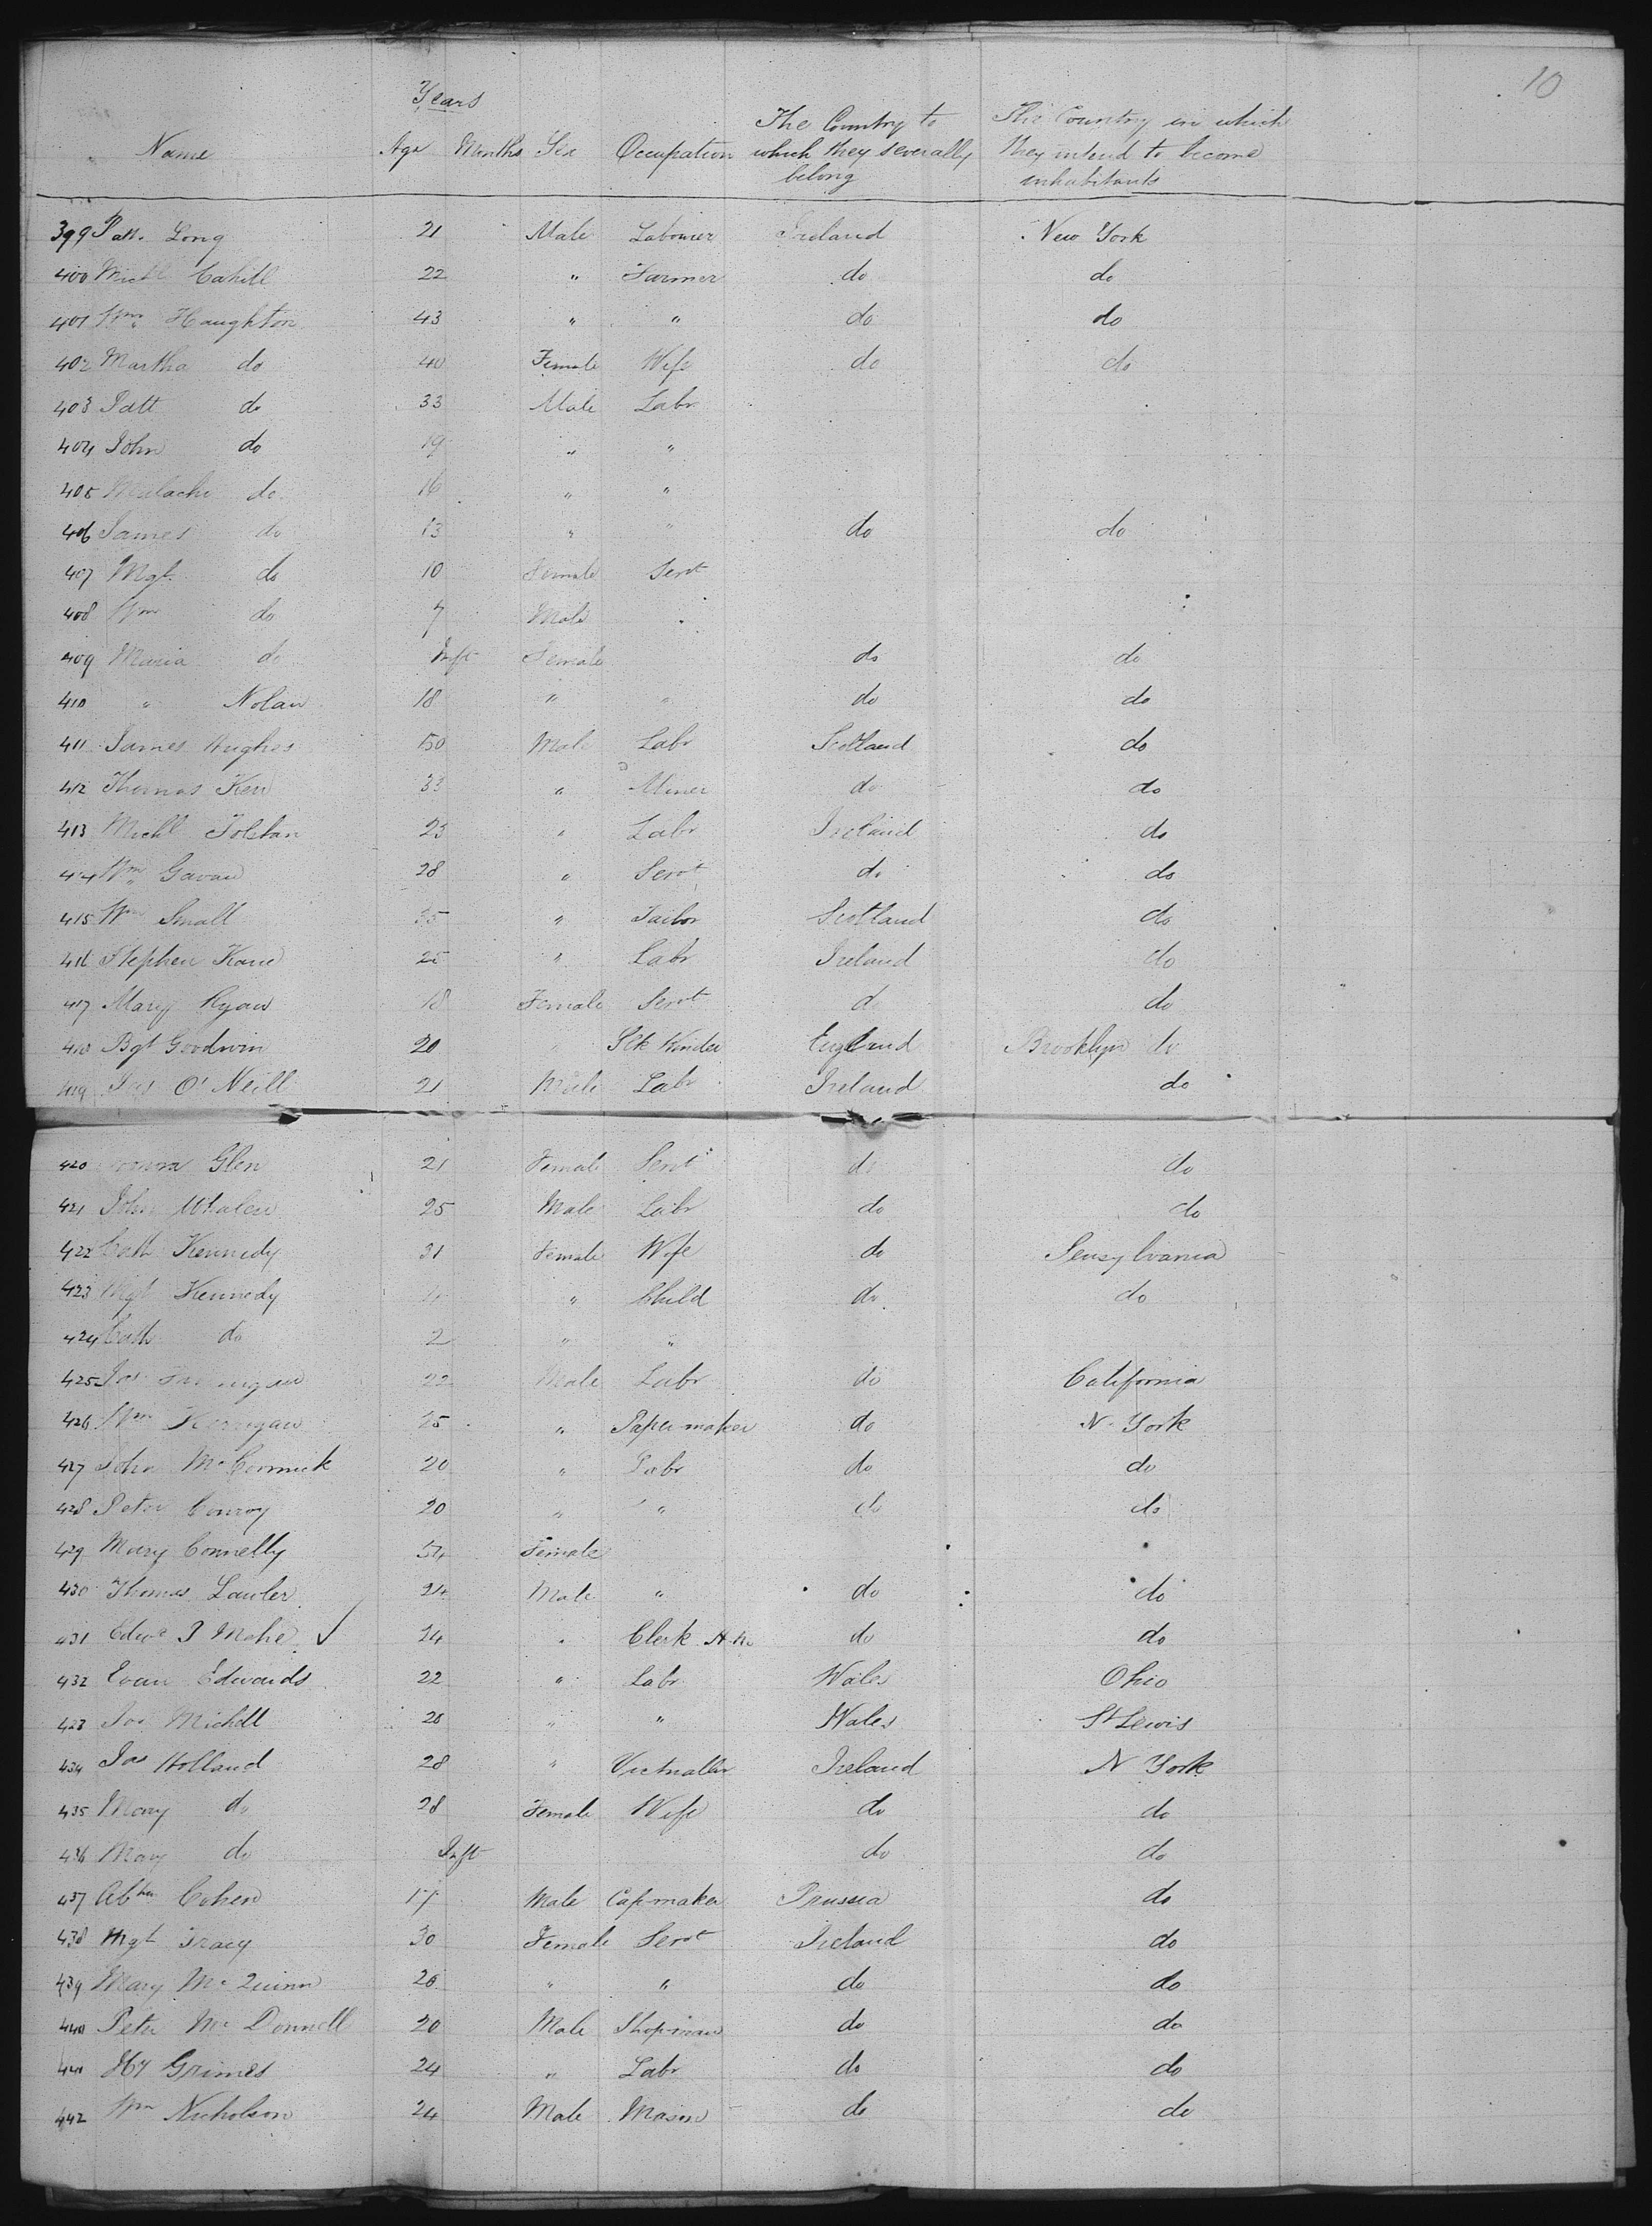 10
Years
Name Age Months Sex Occupation The Country to which they severally belong The Country in which they intend to become inhabitants
399 Patt. Long 21 Male Labourer Ireland New York
400 Michl Cahill 22 " Farmer do do
401 Wm Haughton 43 " " do do
402 Martha do 40 Female Wife do do
403 Patt do 33 Male Labr
404 John do 19 " "
405 Malachi do 16 " "
406 James do 13 " " do do
407 Mgt. do 10 Female Servt
408 Wm do 7 Male
409 Maria do Inft Female do do
410 " Nolan 18 " " do do
411 James Hughes 50 Male Labr Scotland do
412 Thomas Kerr 33 " Miner do do
413 Michl 23 " Labr Ireland do
414 Wm Gavan 28 " Servt do do
415 Wm Small 35 " Tailor Scotland do
416 Stephen Kane 25 " Labr Ireland do
417 Mary Ryan 18 Female Servt do do
418 Bgt Goodwin 20 " England Brooklyn do
419 O'Neill 21 Male Labr Ireland do
420 Glen 21 Female Servt do do
421 John Whalen 25 Male Labr do do
422 Cath Kennedy 31 Female Wife do Pensylvania
423 Mgt Kennedy " Child do do
424 Cath do 2 " "
425 Jas 22 Male Labr do California
426 Wm Kerrigan 25 " Paper maker do N. York
427 John McCormick 20 " Labr do do
428 Peter Conroy 20 " " do do
429 Mary Connelly 54 Female
430 Thomas Lawler 24 Male " do do
431 Edwd 24 " Clerk do do
432 Evan Edwards 22 " Labr Wales Ohio
433 Jos Michell 26 " " Wales St Lewis
434 Jas Holland 28 " Victualler Ireland N York
435 Mary do 28 Female Wife do do
436 Mary do Inft do do
437 Abhm Cohen 17 Male Cap-maker Prussia do
438 Mgt Tracy 30 Female Servt Ireland do
439 Mary McQuinn 26 " " do do
440 Peter McDonnell 20 Male Shopman do do
441 Hy Grimes 24 " Labr do do
442 Wm Nicholson 24 Male Mason do do